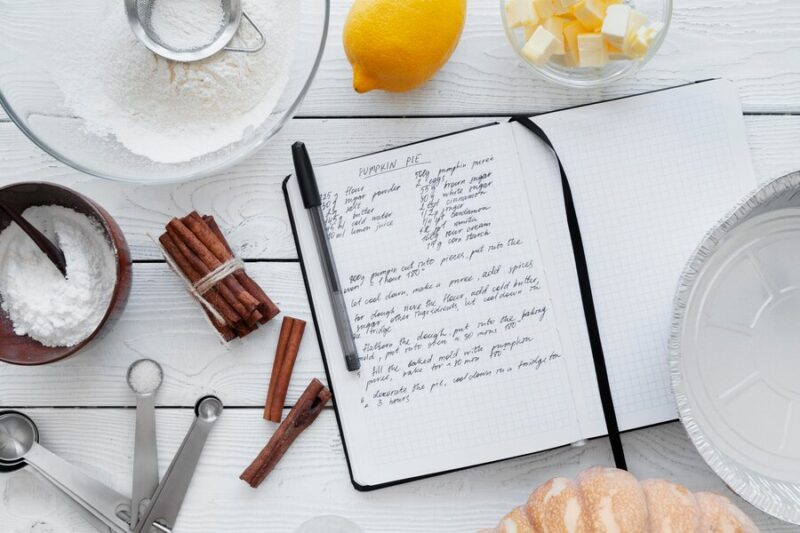 PUMPKIN PIE
flour
sugar powder
salt
butter
cold water
lemon juice
500g pumpkin puree
2 eggs
55g brown sugar
30g white sugar
2 tsp cinnamon
ginger
cardamom
vanilla
sour cream
corn starch
800g pumpkin cut into pieces, put into the
1 hour 180°
let cool down, make a puree, add spices
for dough: the flour add cold butter,
sugar, other ingridients, let cool down in
the fridge
the dough, put into the baking
mold, put into oven 180°
fill the baked mold with pumpkin
puree, bake for
decorate the pie, cool down in a fridge for
3 hours